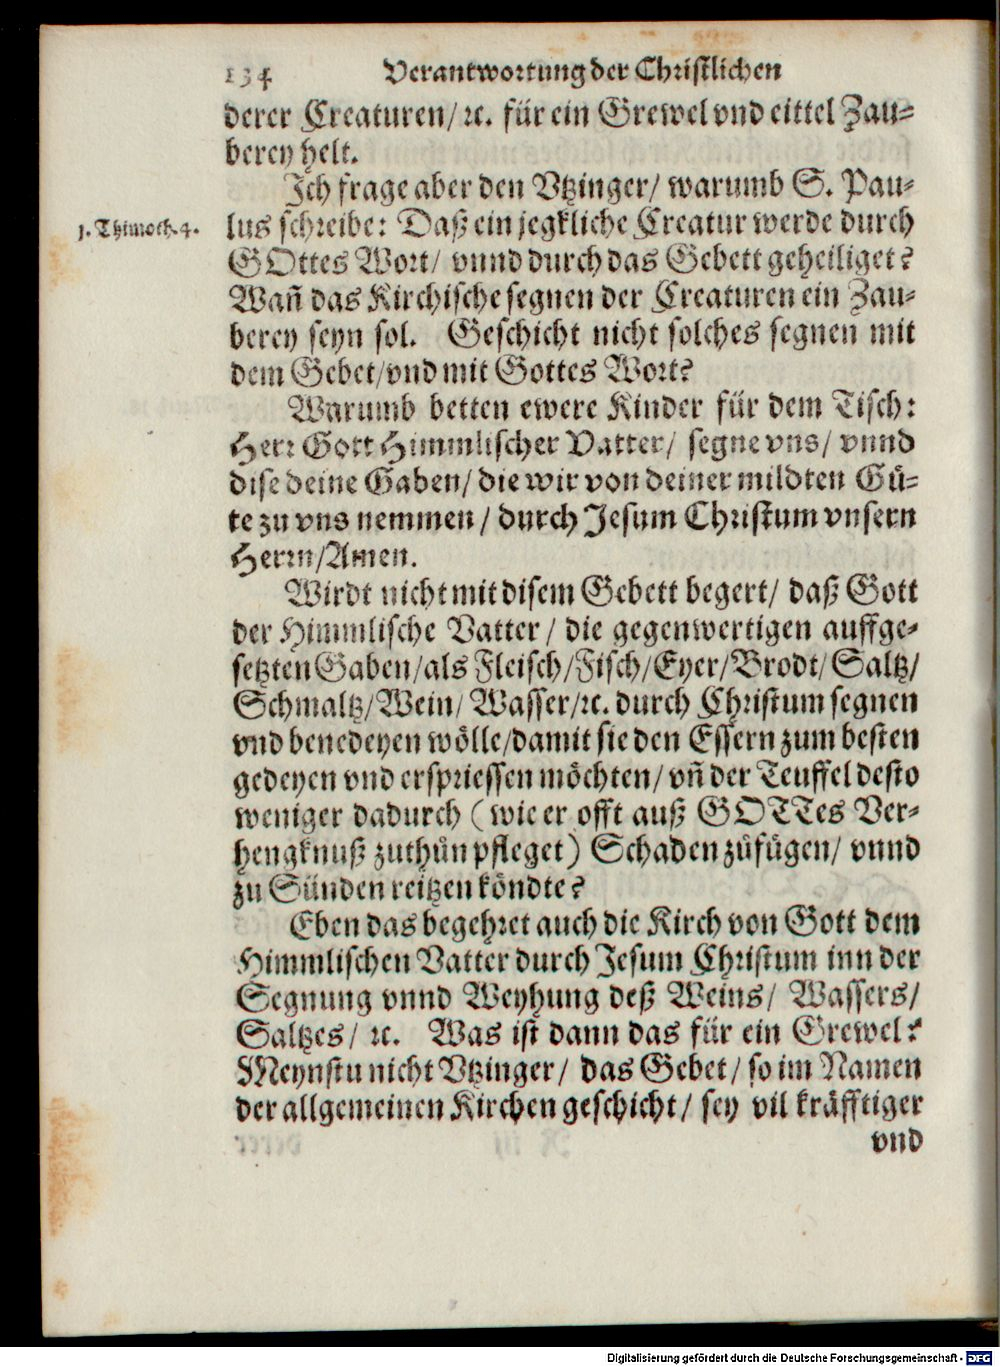 134 Verantwortung der Christlichen
derer Creaturen/ ꝛc. für ein Grewel vnd eittel Zau⸗
berey helt.
Ich frage aber den Vtzinger/ warumb S. Pau⸗
1. Thimoth. 4.
lus schreibe: Daß ein jegkliche Creatur werde durch
GOttes Wort/ vnnd durch das Gebett geheiliget?
Wañ das Kirchische segnen der Creaturen ein Zau⸗
berey seyn sol. Geschicht nicht solches segnen mit
dem Gebet/ vnd mit Gottes Wort?
Warumb betten ewere Kinder für dem Tisch:
Herr Gott Himmlischer Vatter/ segne vns/ vnnd
dise deine Gaben/ die wir von deiner mildten Gü⸗
te zu vns nemmen/ durch Jesum Christum vnsern
Herrn/ Amen.
Wirdt nicht mit disem Gebett begert/ daß Gott
der Himmlische Vatter/ die gegenwertigen auffge⸗
setzten Gaben/ als Fleisch/ Fisch/ Eyer/ Brodt/ Saltz/
Schmaltz/ Wein/ Wasser/ ꝛc. durch Christum segnen
vnd benedeyen wölle/ damit sie den Essern zum besten
gedeyen vnd erspriessen möchten/ vñ der Teuffel desto
weniger dadurch (wie er offt auß GOTTes Ver⸗
hengknuß zuthůn pfleget) Schaden zůfügen/ vnnd
zu Sünden reitzen köndte?
Eben das begehret auch die Kirch von Gott dem
Himmlischen Vatter durch Jesum Christum inn der
Segnung vnnd Weyhung deß Weins/ Wassers/
Saltzes/ ꝛc. Was ist dann das für ein Grewel?
Meynstu nicht Vtzinger/ das Gebet/ so im Namen
der allgemeinen Kirchen geschicht/ sey vil kräfftiger
vnd
Digitalisierung gefördert durch die Deutsche Forschungsgemeinschaft - DFG